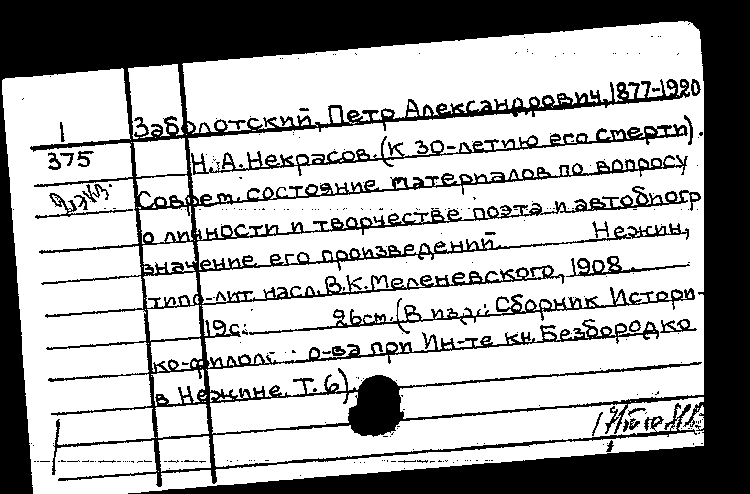 Заболотский, Петр Александрович, 1877-1920
1
375
Н.А.Некрасов. (К 30-летию его смерти).
Соврем. состояние материалов по вопросу
о личности и творчестве поэта и автобиогр
значение его произведений. Нежин,
типо-лит. насл. В.К.Меленевского, 1908.
19с. 26см. (В изд.: Сборник Истори-
ко-филол. о-ва при Ин-те кн. Безбородко
в Нежине. Т. 6).